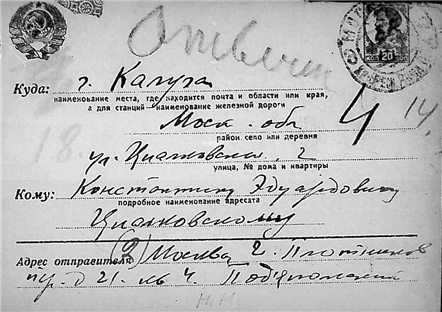 Ответил
КОП 20 КОП
Куда: г. Калуга
наименование места, где находится почта и области или края,
а для станций — наименование железной дороги
Моск. обл
район село или деревня
14.
ул. Циолковского, 2
улица, № дома и квартиры
Кому: Константину Эдуардовичу
подробное наименование адресата
Циолковскому
Адрес отправителя (2) Москва 2. Плотников
пер. д 21. кв 4.